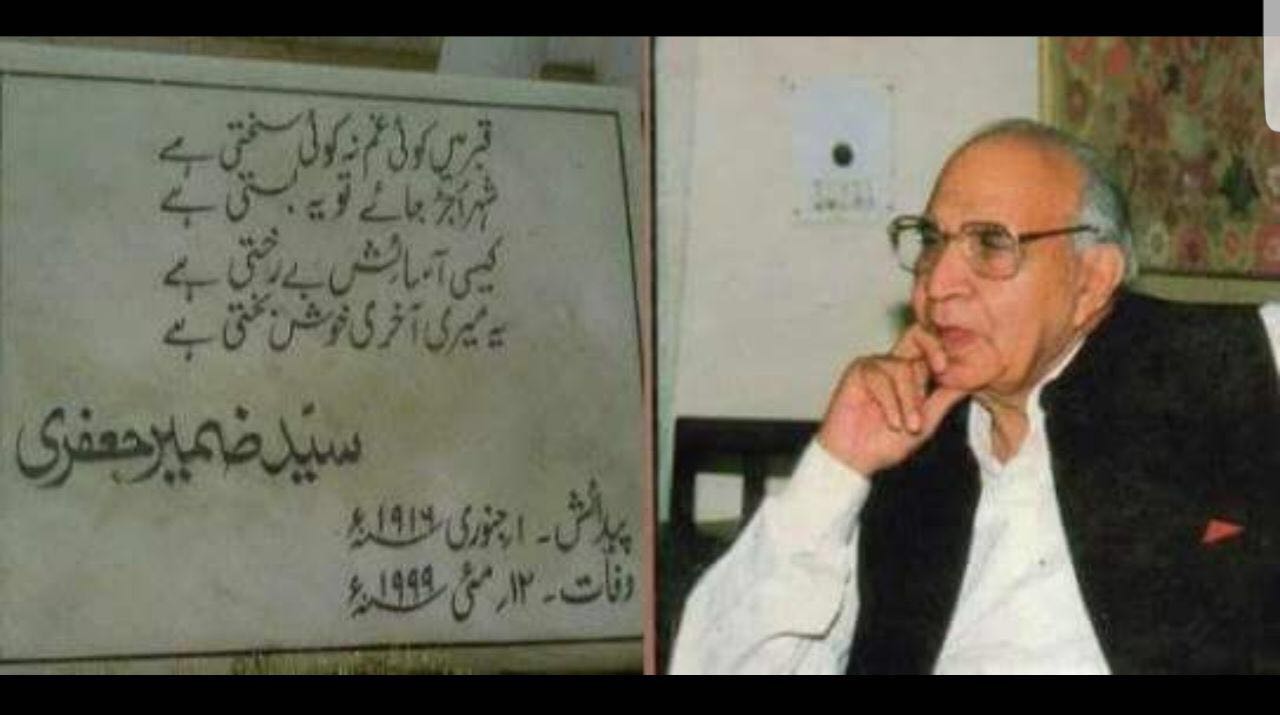 قبر میں کوئی غم نہ کوئی سختی ہے
شہر اجڑ جائے تو یہ بستی ہے
کیسی آسائشِ بے رختی ہے
یہ میری آخری خوش بختی ہے
سیّد ضمیر جعفری
پیدائش۔ ۱ر جنوری ۱۹۱۶ سنہ ء
وفات۔ ۱۲ر مئی ۱۹۹۹ سنہ ء